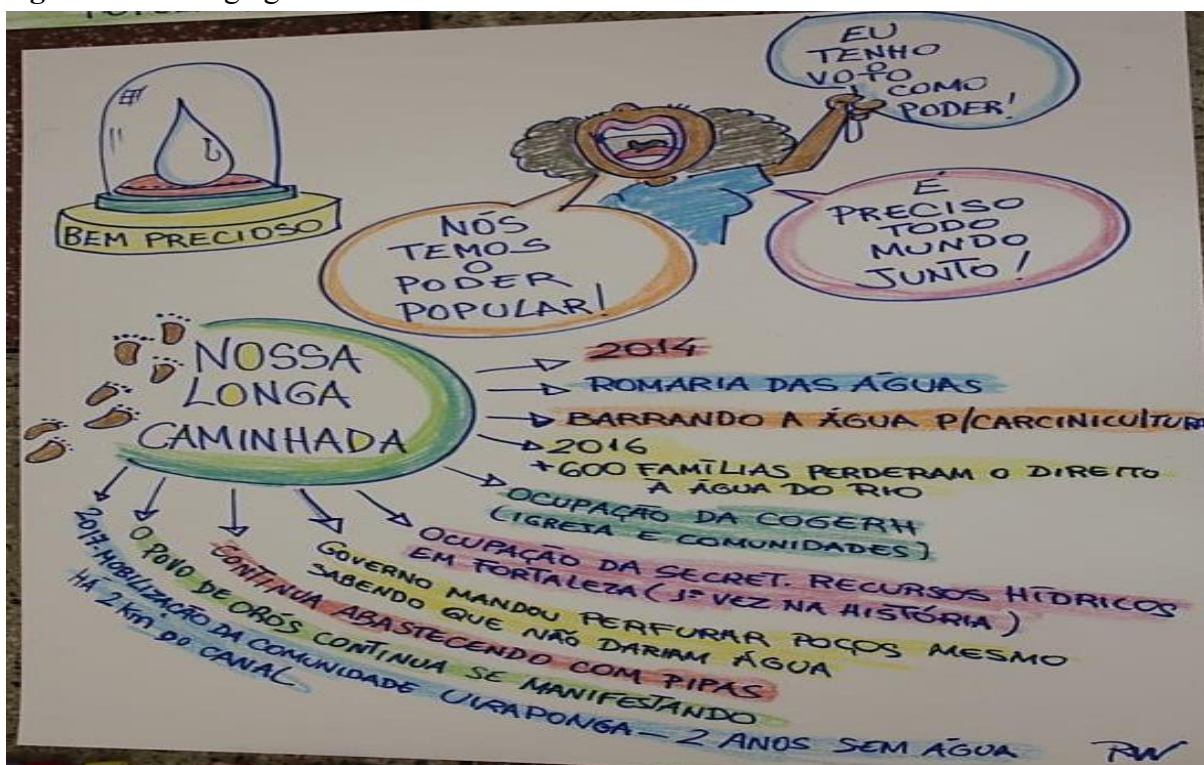 EU
TENHO
O
VOTO
COMO
PODER!
BEM PRECIOSO
NÓS
TEMOS
O
PODER
POPULAR!
É
PRECISO
TODO
MUNDO
JUNTO!
NOSSA
LONGA
CAMINHADA
2014
ROMARIA DAS ÁGUAS
BARRANDO A ÁGUA P/CARCINICULTURA
2016
+600 FAMÍLIAS PERDERAM O DIREITO
À ÁGUA DO RIO
OCUPAÇÃO DA COGERH
(IGREJA E COMUNIDADES)
OCUPAÇÃO DA SECRET. RECURSOS HÍDRICOS
EM FORTALEZA (1ª VEZ NA HISTÓRIA)
GOVERNO MANDOU PERFURAR POÇOS MESMO
SABENDO QUE NÃO DARIAM ÁGUA
CONTINUA ABASTECENDO COM PIPAS
O POVO DE ORÓS CONTINUA SE MANIFESTANDO
2017-MOBILIZAÇÃO DA COMUNIDADE UIRAPONGA - 2 ANOS SEM ÁGUA
HÁ 2 Km DO CANAL
RW